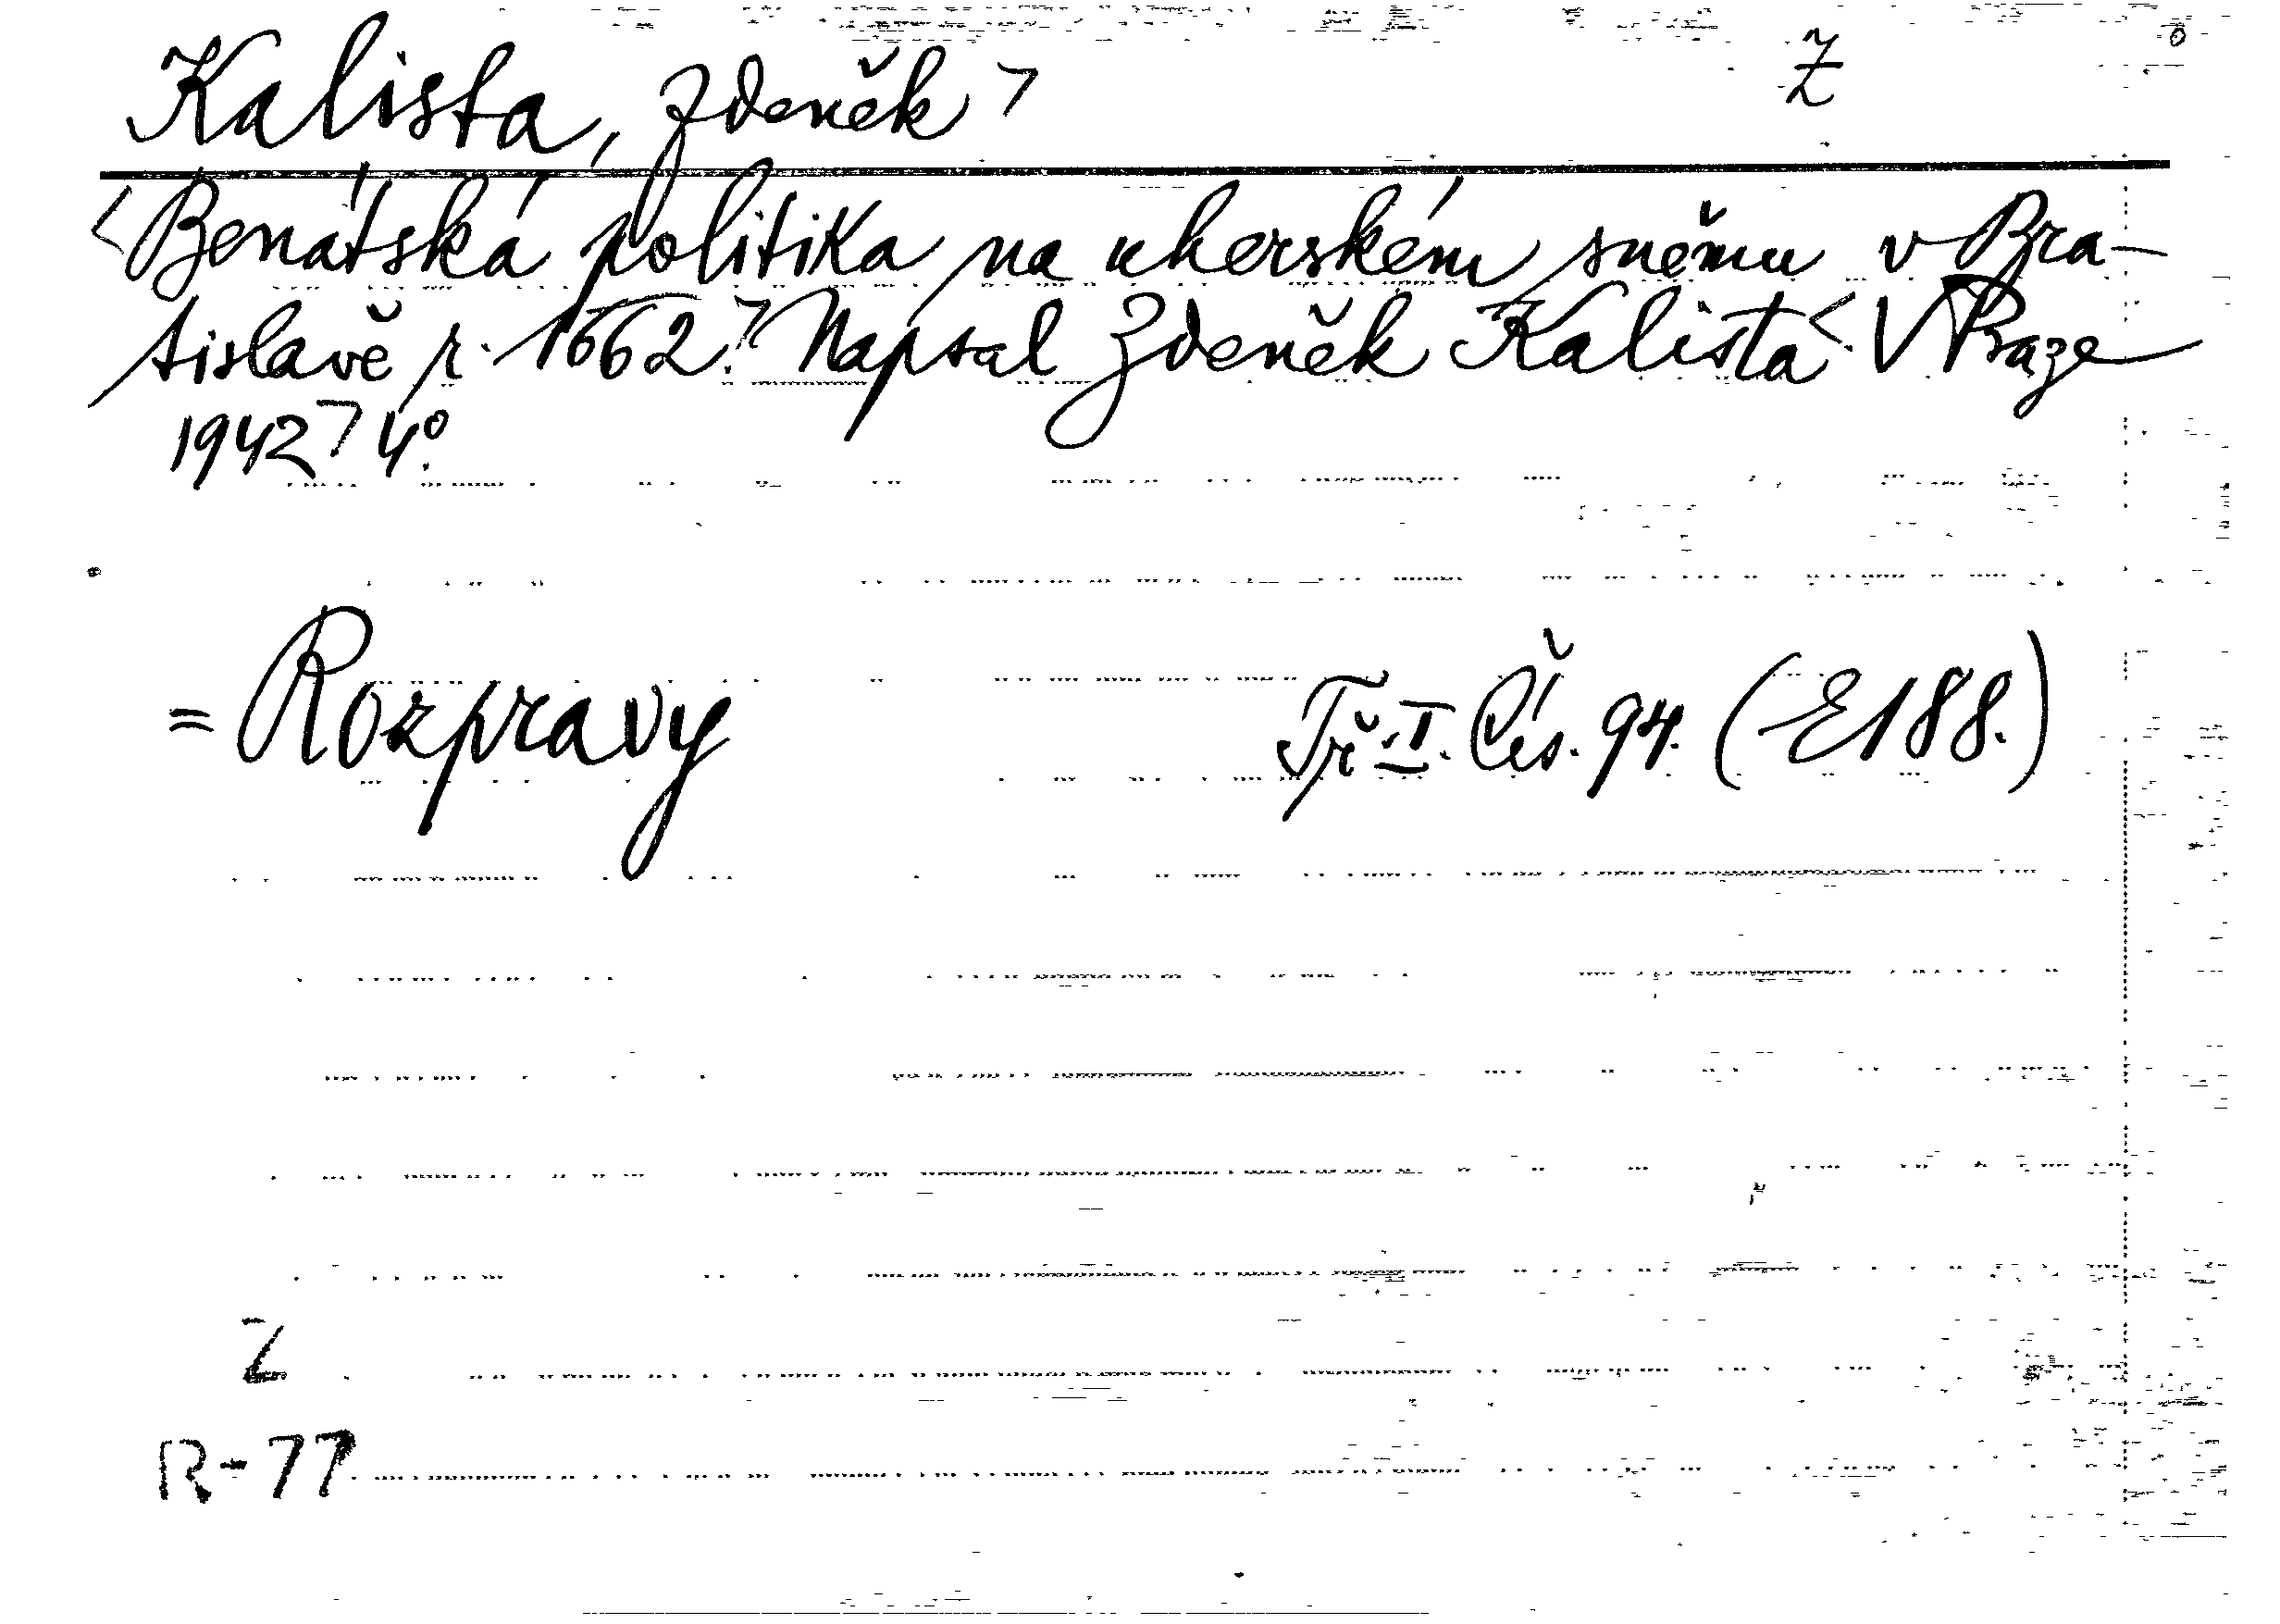 Kalista, Zdeněk ⟩ Z
⟨Benátská politika na uherském sněmu v Bra-
tislavě r. 1662.⟩ Napsal Zdeněk Kalista⟨. V Praze
1942⟩ 4°.
= Rozpravy Tř. I. Čís. 94. (E 188.)
Z
R-77